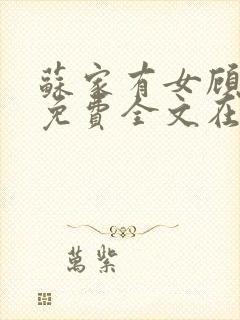 蘇家有女顧
免費全文在
萬紫